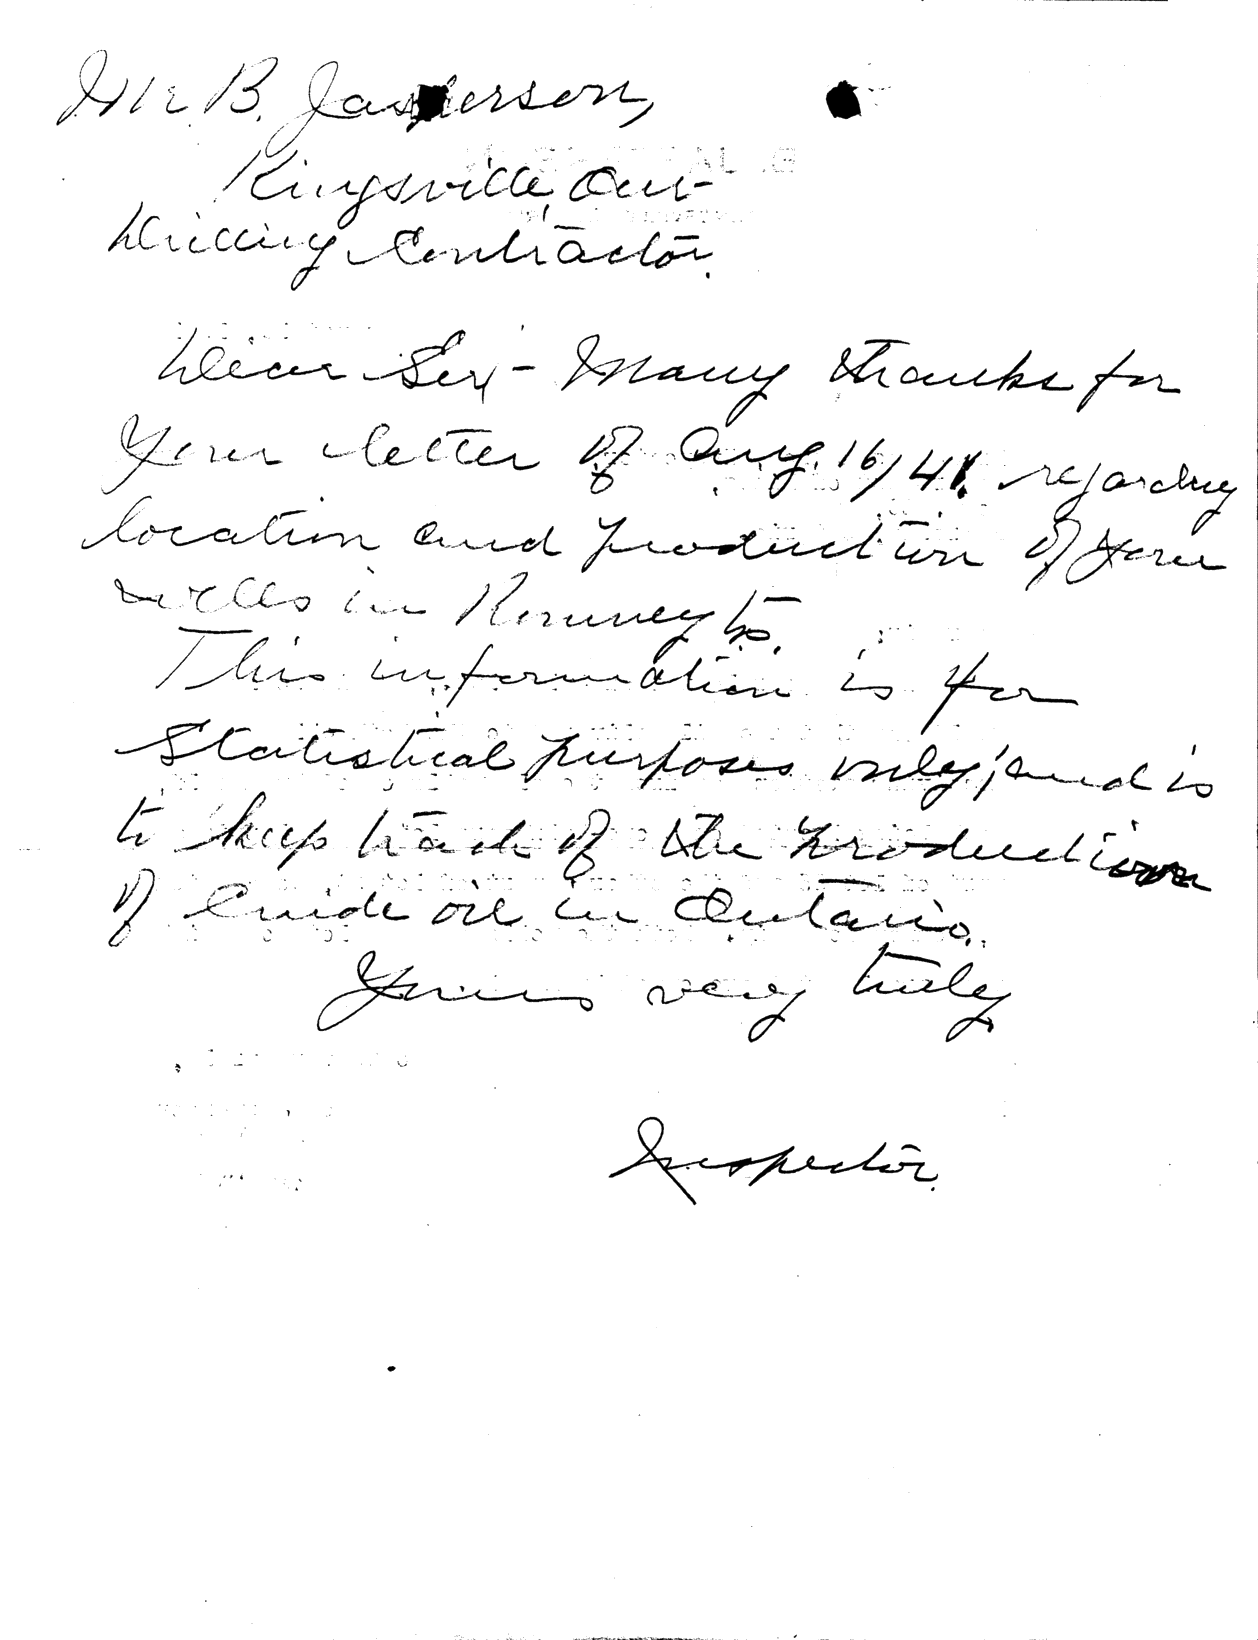 Mr B. Jasperson,
Kingsville, Ont-
Drilling Contractor.
Dear Sir, - Many thanks for
Your letter of Aug. 16/41. regarding
location and production of your
wells in Romney tp.
This information is for
Statistical purposes only; and is
to keep track of the production
of Crude oil in Ontario.
Yours very truly
Inspector.